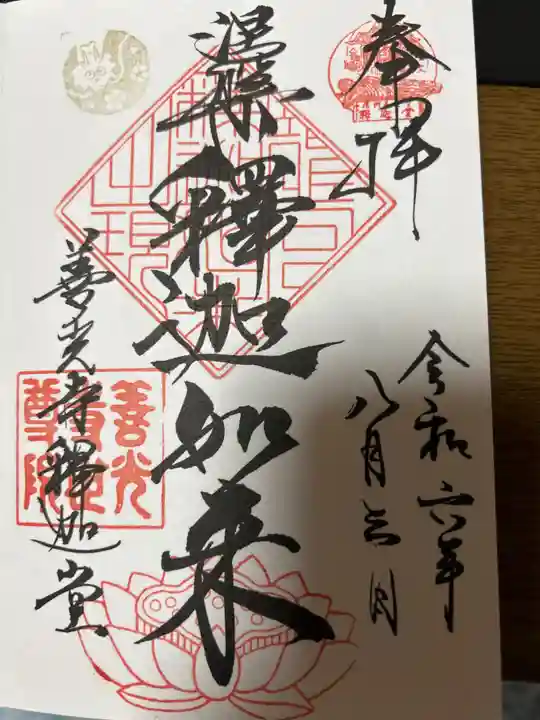 奉拝
令和六年
八月三日
涅槃釋迦如来
善光寺釋迦堂
善光
世尊院